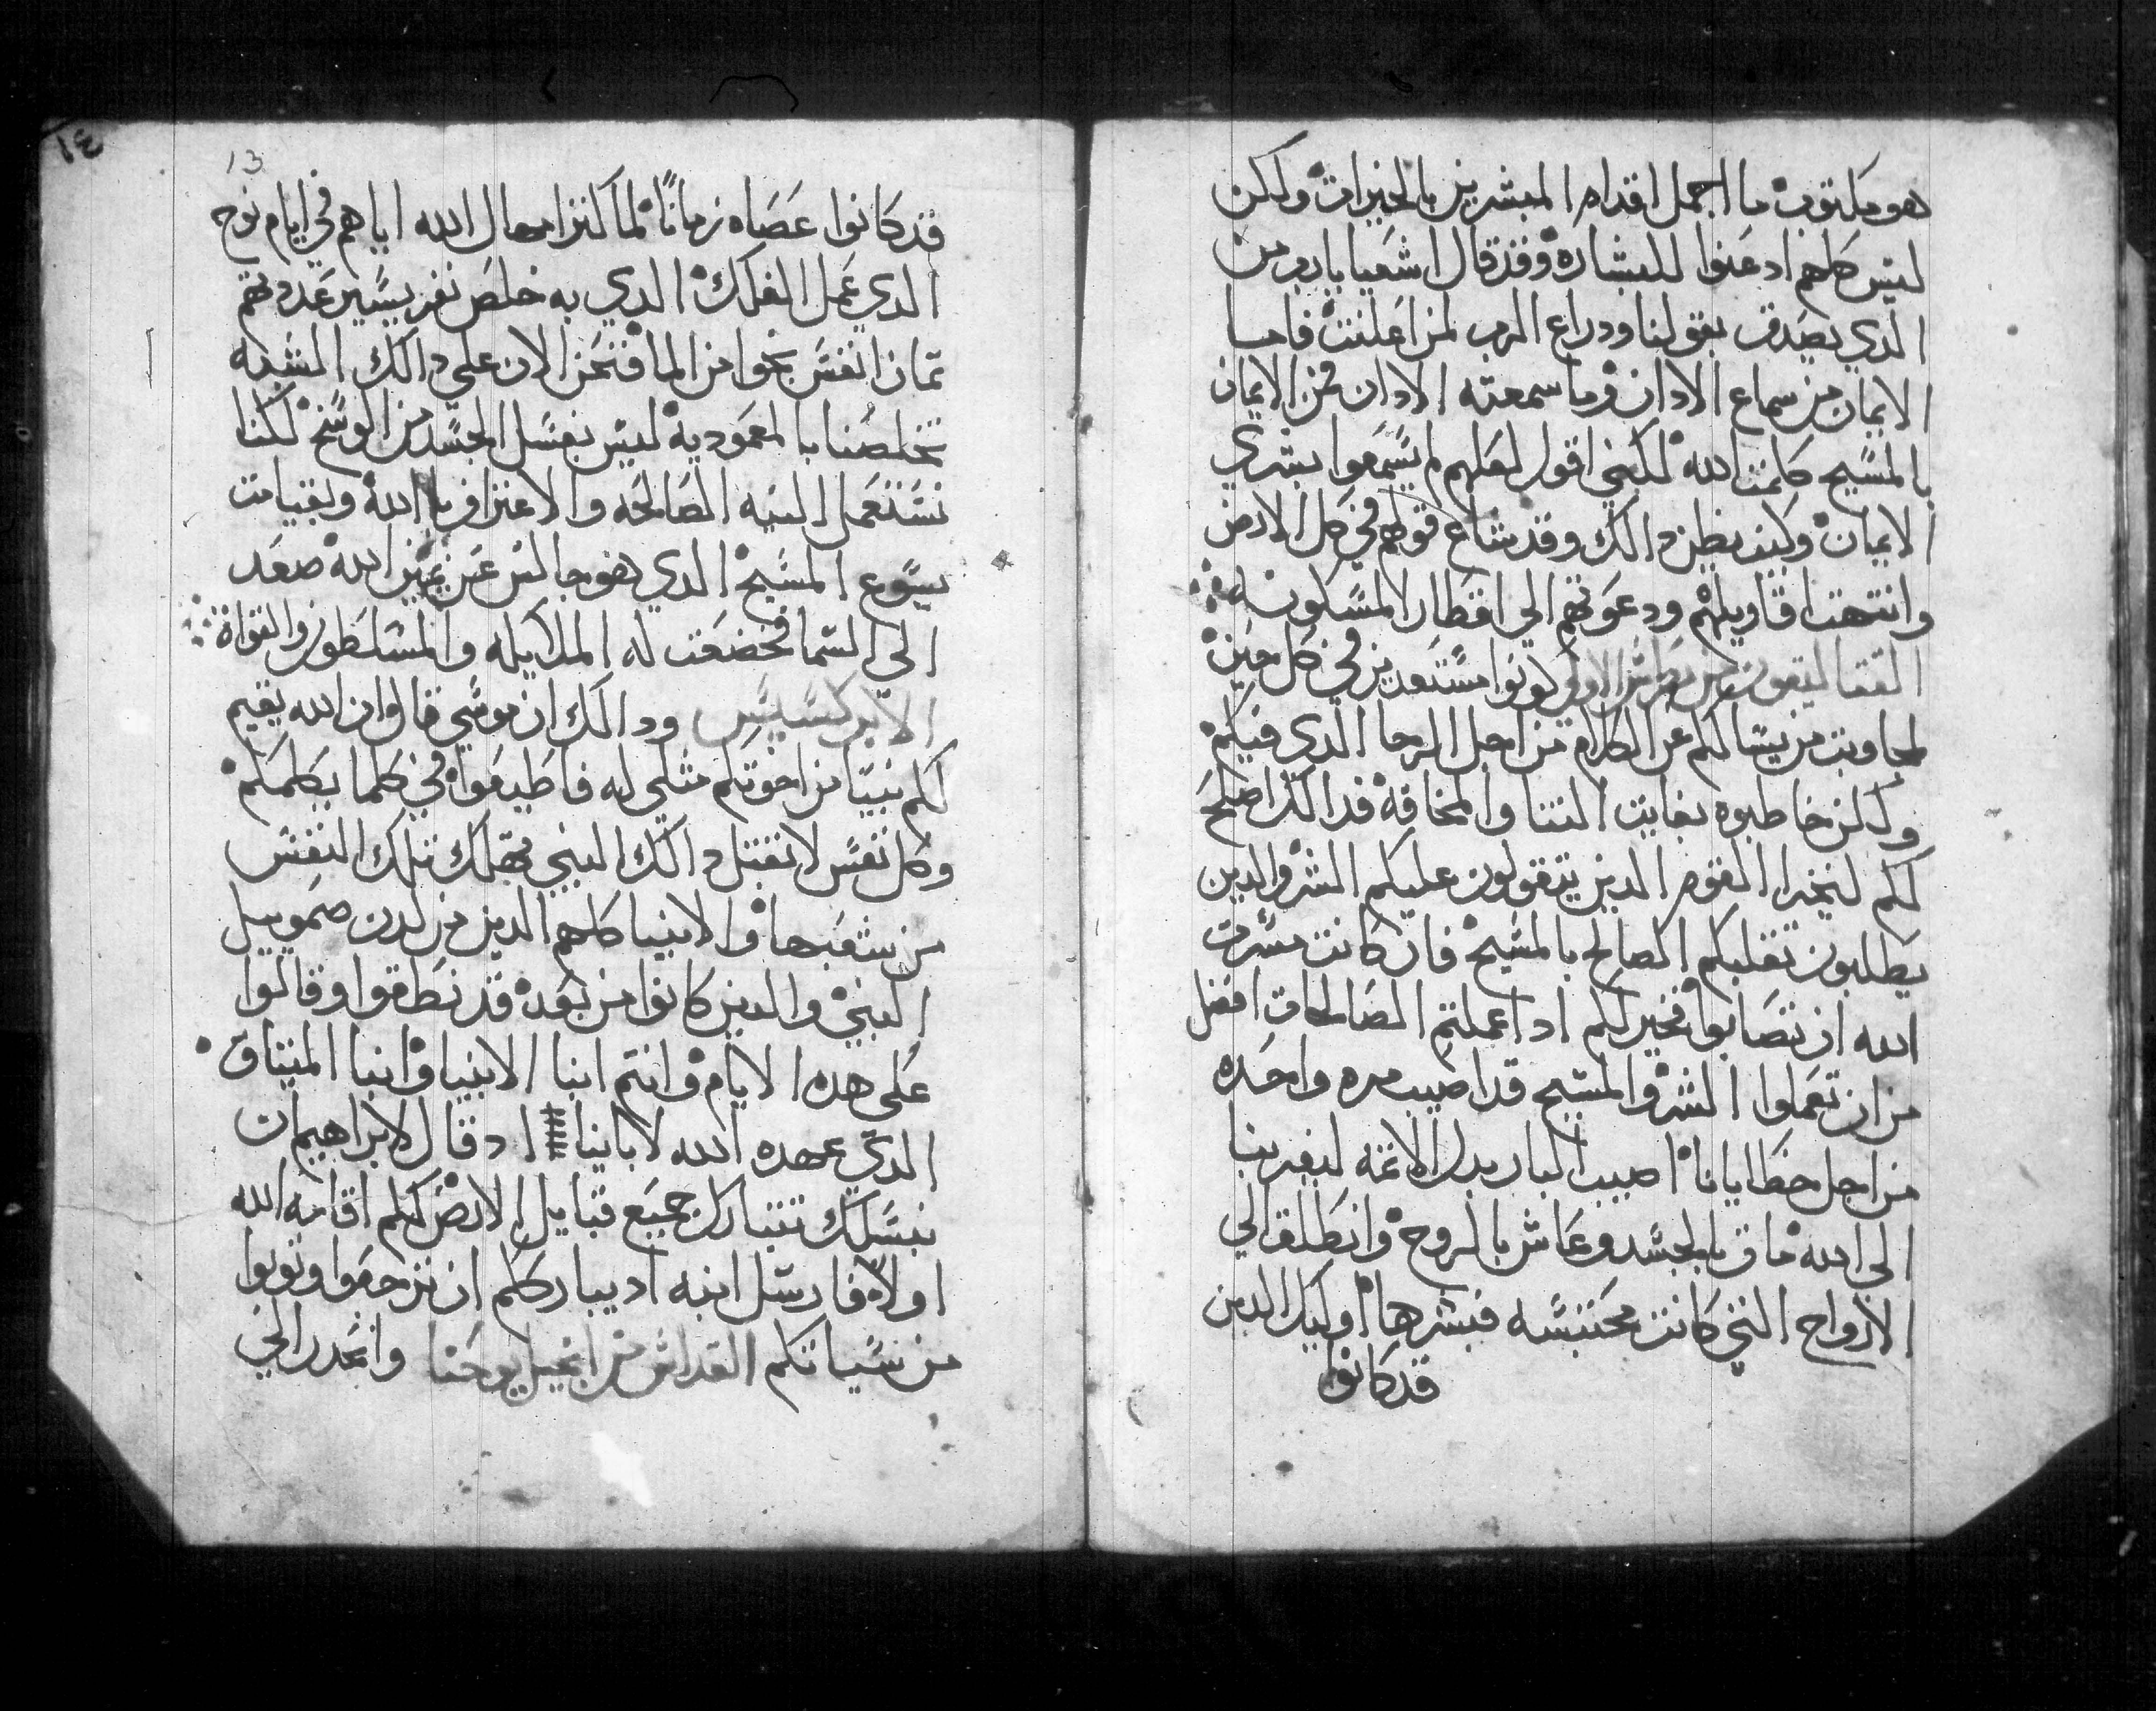 هو مكتوب ما اجمل اقدام المبشرين بالخيرات ولكن
ليس كلهم ادعنوا للبشاره وقد قال اشعيا يارب من
الدي يصدق بقولنا ودراع الرب لمن اعلنت فاما
الايمان من سماع الادان وما سمعته الادان فمن الايمان
بالمسيح كلمت الله لكني اقول لعلهم لم يسمعوا بشري
الايمان وكيف يظن دالك وقد شاع قولهم في كل الارض
وانتهت اقاويلهم ودعوتهم الي اقطار المسكونه
القتاليقون من بطرس الاولي كونوا مستعدين في كل حين
لمجاوبت من يسالكم عن الكلام من اجل الرجا الدي فيكم
ولكن خاطبوه بغايت التتا والمخافه فدالك اصلح
لكم ليخزا القوم الدين يتقولون عليكم الشر والدين
يطلبون تقلبكم الصالح بالمسيح فان كانت مسرت
الله ان تصابوا فخير لكم اد اعملتم الصالحات افضل
من ان تعملوا الشر والمسيح قد اصيب مره واحده
من اجل خطايانا اصيب البار بدل الاثمه ليقربنا
الي الله مات بالجسد وعاش بالروح وانطلق الي
الارواح التي كانت محتبسه فبشرها اوليك الدين
قد كانوا
١٤
13
قد كانوا عصاه زمانا لما كثر امهال الله اياهم في ايام نوح
الدي عمل الفلك الدي به خلص نفر يسير عددهم
تمان انفس نجوا من الما فنحن الان علي دالك الشبه
تخلصنا بالمعموديه ليس بغسل الجسد من الوسخ لكنا
نستعمل النيه الصالحه والاعتراف بالله وبقيامت
يسوع المسيح الدي هو جالس عن يمين الله صعد
الي السما فخضعت له الملايكه والمسلطون والقواة
الابركسيس ودالك ان موسي قال ان الله يقيم
لكم نبيا من اخوتكم متلي له فاطيعوا في كلما يكلمكم
وكل نفس لا تقبل دالك النبي تهلك تلك النفس
من شعبها والانبيا كلهم الدين من لدن صموييل
النبي والدين كانوا من بعده قد نطقوا وقالوا
علي هده الايام وانتم ابنا الانبيا وابنا الميتاق
الدي عهده الله لاباينا اد قال لابراهيم ان
بنسلك تتبارك جميع قبايل الارض لكم اقامه الله
اولا فارسل ابنه اد يبارككم ان ترجعوا وتوبوا
من سياتكم القداس من انجيل يوحنا وانحدر الي